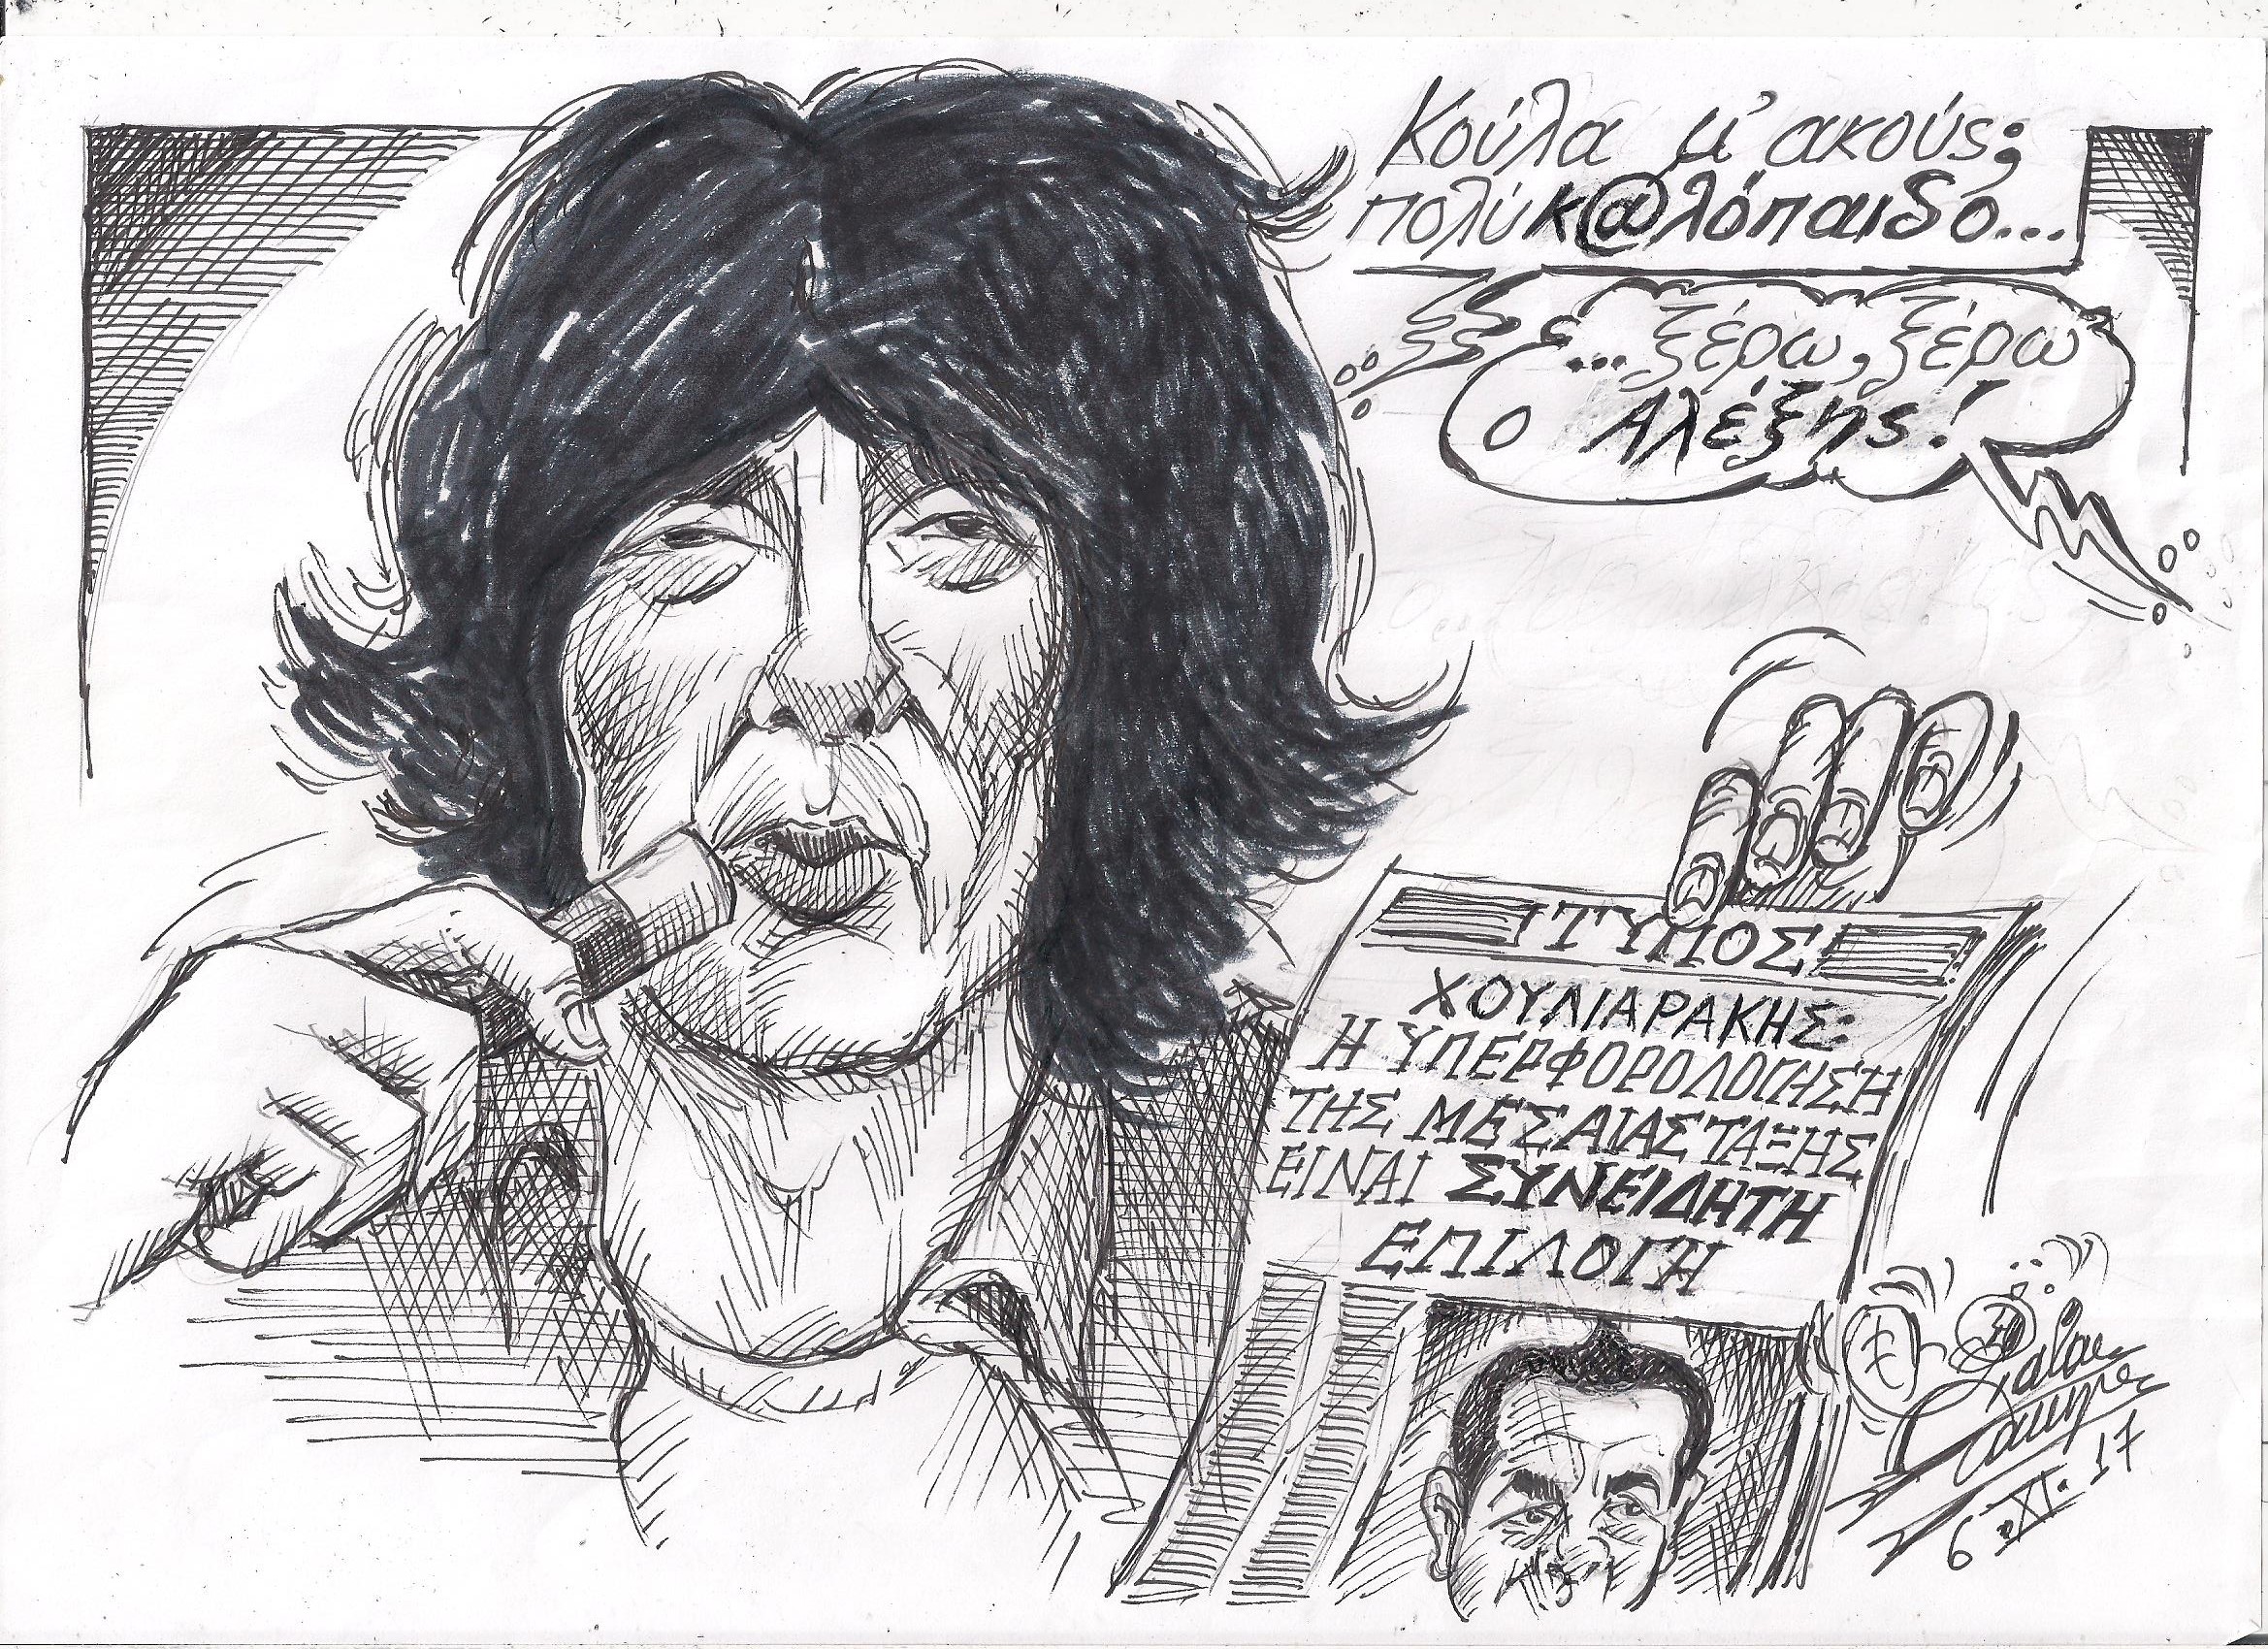 Κούλα μ' ακούς;
πολύκ@λόπαιδο...
...ξέρω, ξέρω
ο Αλέξης!
ΤΥΠΟΣ
ΧΟΥΛΙΑΡΑΚΗΣ:
Η ΥΠΕΡΦΟΡΟΛΟΓΗΣΗ
ΤΗΣ ΜΕΣΑΙΑΣ ΤΑΞΗΣ
ΕΙΝΑΙ ΣΥΝΕΙΔΗΤΗ
ΕΠΙΛΟΓΗ
6.XI.17